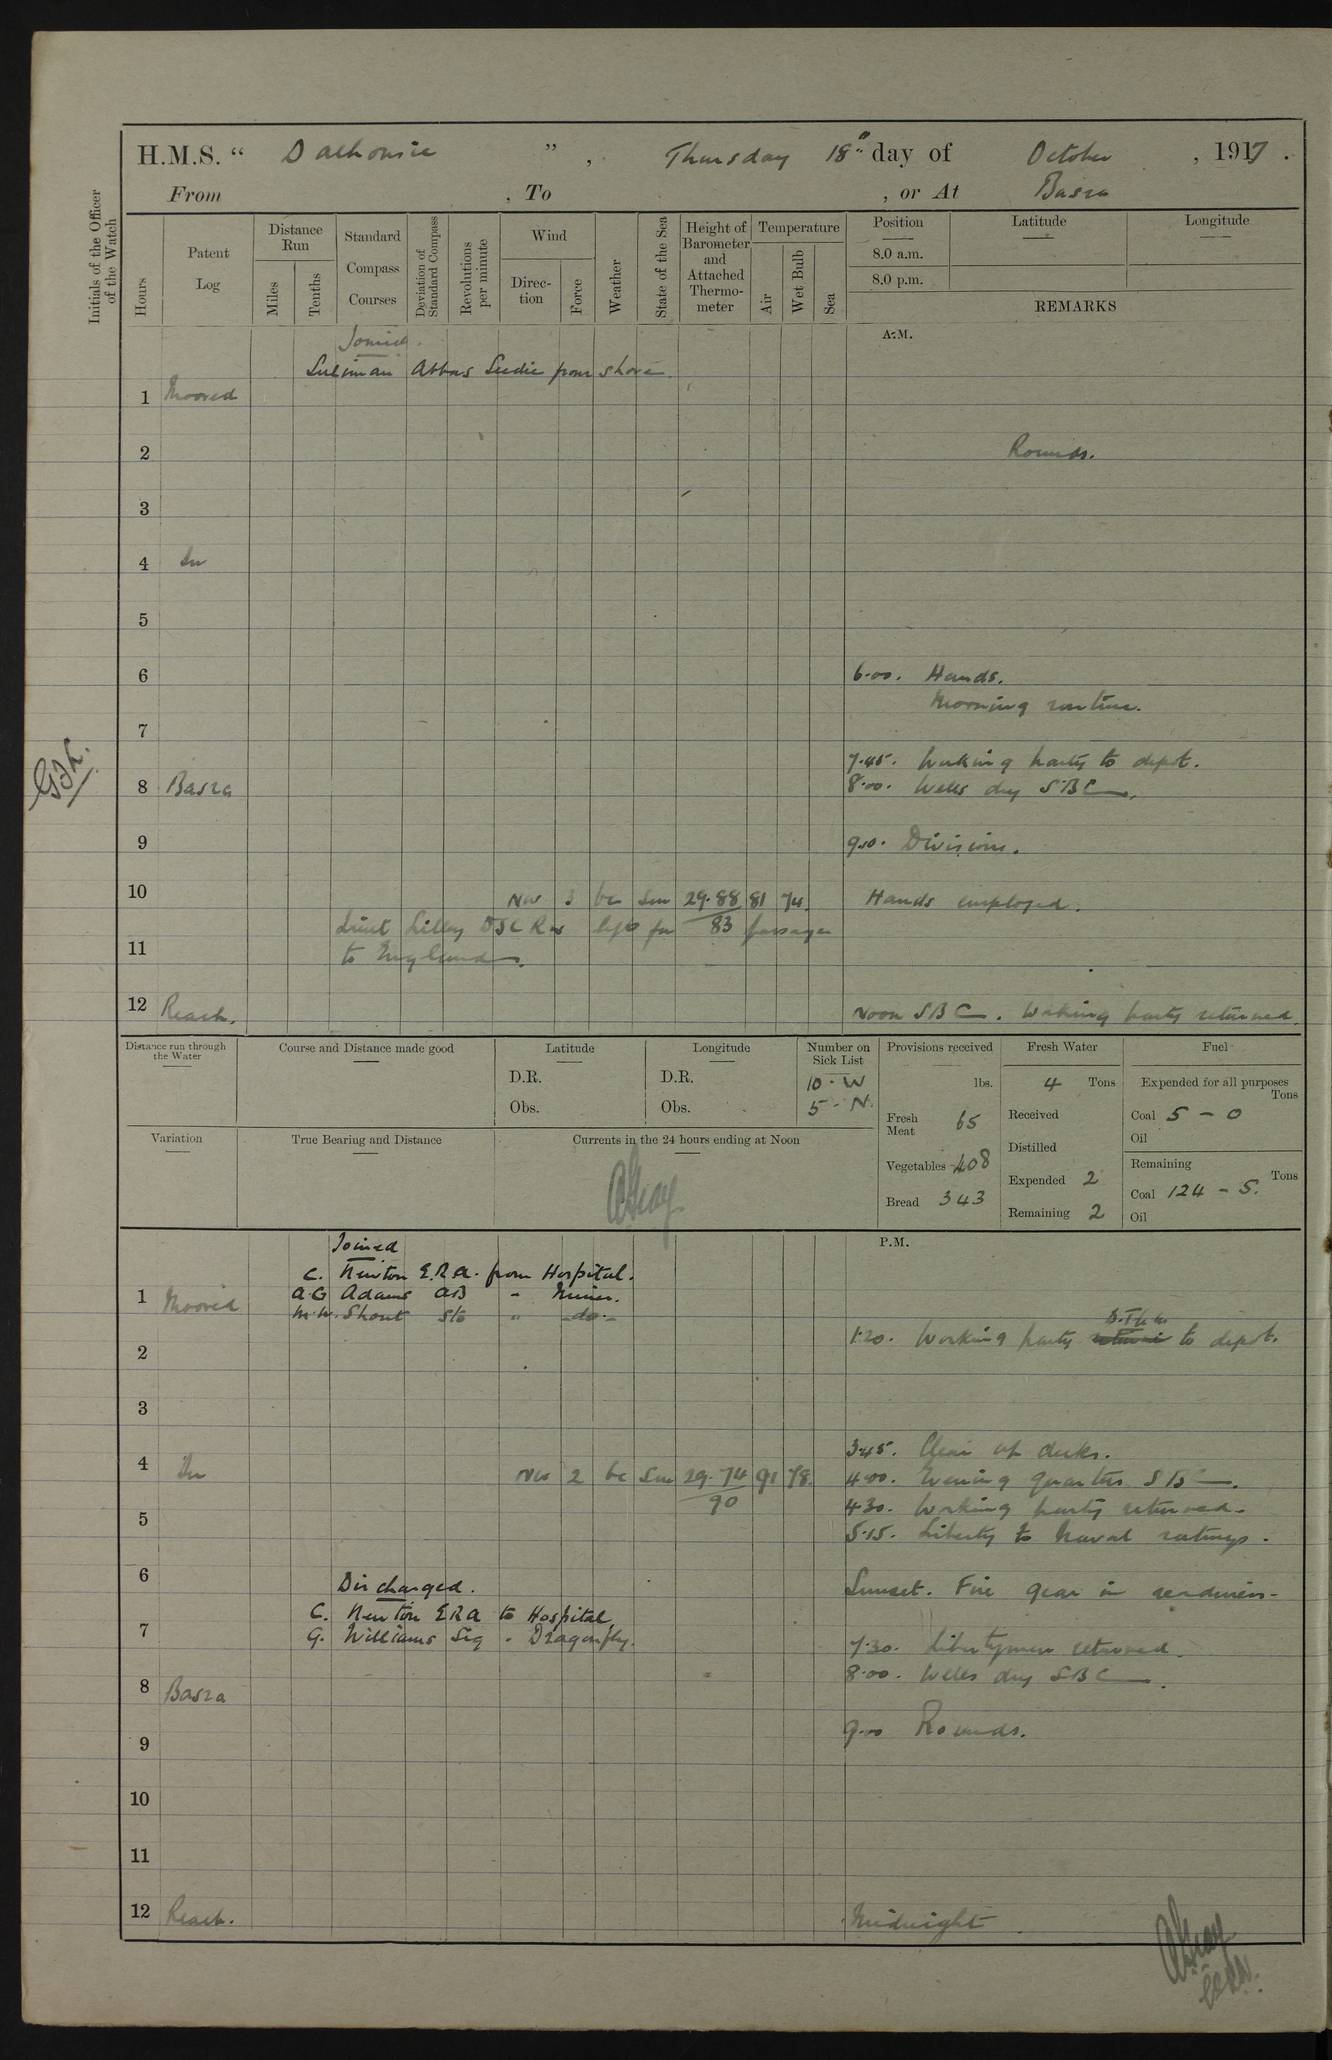 H.M.S. " Dalhousie " , Thursday 18th day of October , 1917 .
From , To , or At Basra
Initials of the Officer of the Watch
Hours
Patent Log
Distance Run
Miles
Tenths
Standard Compass Courses
Deviation of Standard Compass
Revolutions per minute
Wind
Direction
Force
Weather
State of the Sea
Height of Barometer and Attached Thermometer
Temperature
Air
Wet Bulb
Sea
Position
8.0 a.m.
8.0 p.m.
Latitude
Longitude
REMARKS
A.M.
Joined.
Suliman Abbas Seedie from shore.
1 Moored
2 Rounds.
3
4 In
5
6 6.00. Hands.
Morning routine.
7
7.45. Working party to depot.
8 Basra 8.00. Wells dry SBC.
9 9.0. Divisions.
10 NW 3 bc Sm 29.88 81 74. Hands employed.
83
Lieut Lilley DSC left for passage
11 to England.
12 Reach. Noon SBC. Working party returned.
Distance run through the Water
Course and Distance made good
Latitude
D.R.
Obs.
Longitude
D.R.
Obs.
Number on Sick List
10 - W
5 - N.
Provisions received
lbs.
Fresh Meat 65
Vegetables 408
Bread 343
Fresh Water
4 Tons
Received
Distilled
Expended 2
Remaining 2
Fuel
Expended for all purposes
Tons
Coal 5 - 0
Oil
Remaining
Tons
Coal 124 - 5.
Oil
Variation
True Bearing and Distance
Currents in the 24 hours ending at Noon
AGray
P.M.
Joined
C. Newton E.R.A. from Hospital.
1 Moored A.G Adams AB " Miner.
M.W. Shout Sto " -do-
1.20. Working party to depot.
2
3
3.45. Clear up decks.
4 In NW 2 bc Sm 29.74 91 78. 4.00. Evening quarters SBC.
90
4.30. Working party returned.
5
5.15. Liberty to Naval ratings.
6 Sunset. Fire gear in readiness.
Discharged.
C. Newton ERA to Hospital
7 G. Williams Sig " Dragonfly.
7.30. Libertymen returned.
8.00. Wells dry SBC.
8 Basra
9 9.00 Rounds.
10
11
12 Reach. Midnight
AGray